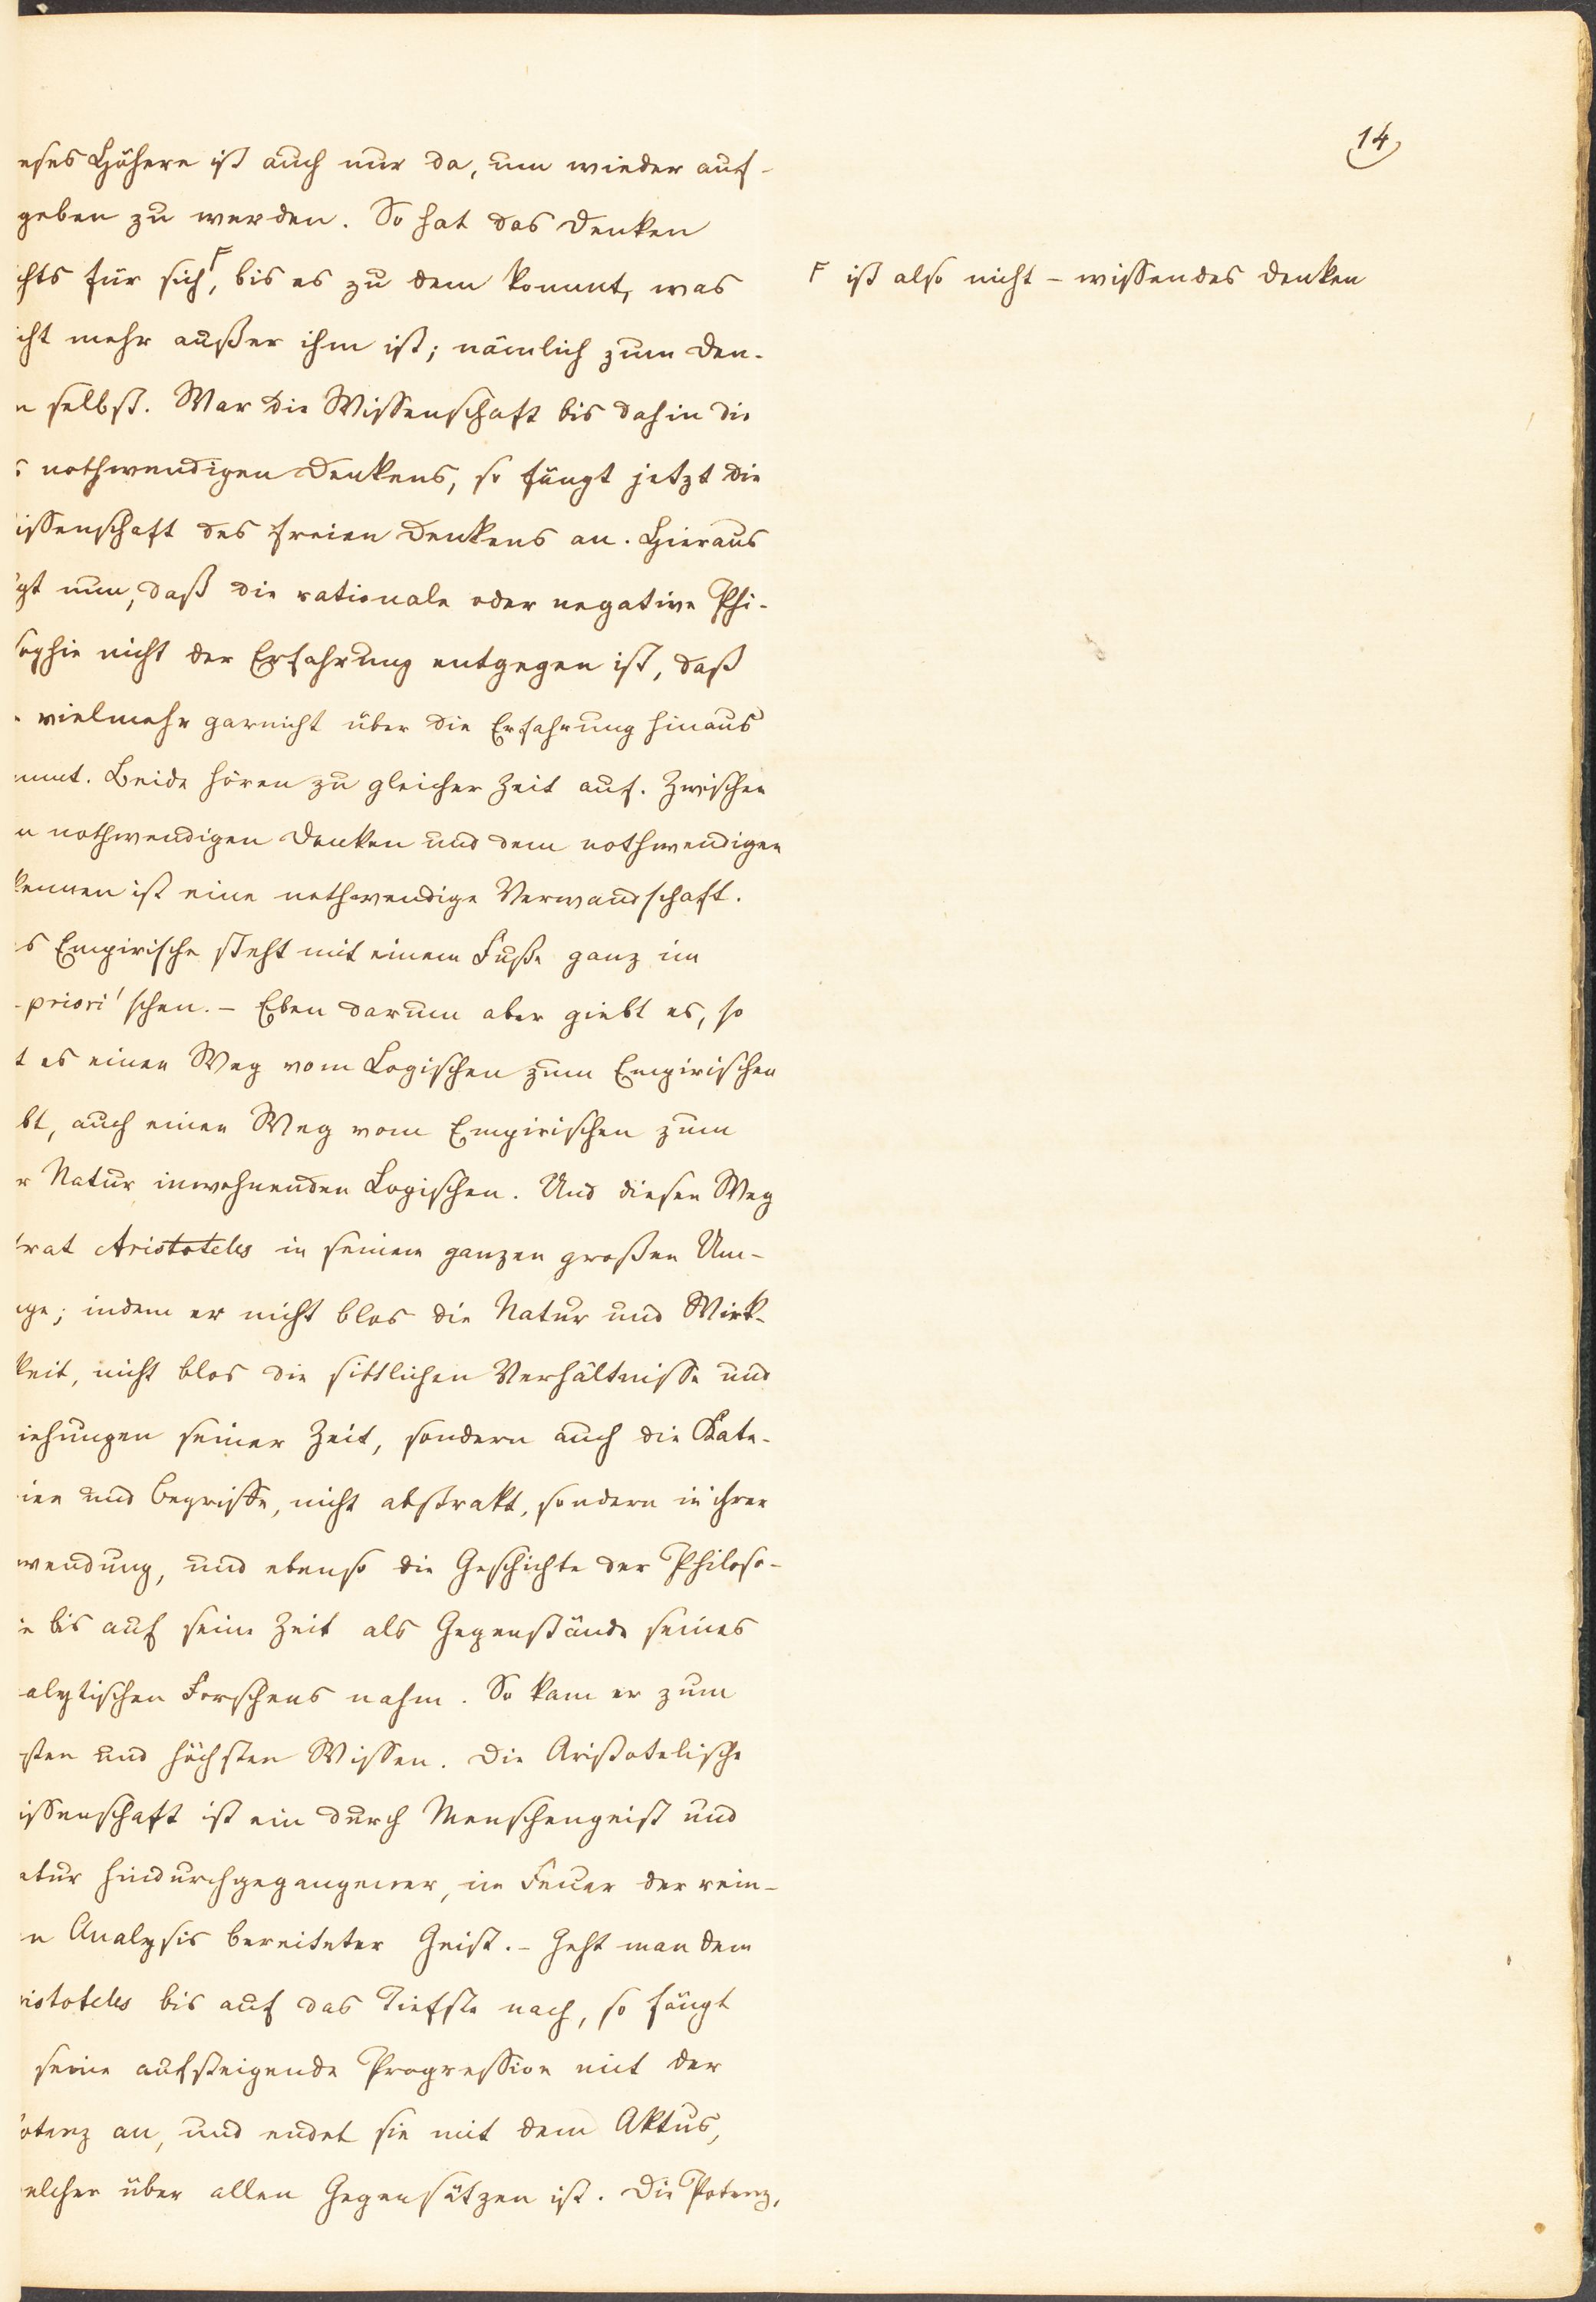 14
eses Höhere ist auch nur da, um wieder auf-
geben zu werden. So hat das Denken
chts für sich F, bis es zu dem kommt, was
F ist also nicht – wissendes Denken
cht mehr außer ihm ist; nämlich zum Den-
n selbst. War die Wissenschaft bis dahin die
s nothwendigen Denkens, so fängt jetzt die
issenschaft des freien Denkens an. Hieraus
gt nun, daß die rationale oder negative Phi-
sophie nicht der Erfahrung entgegen ist, daß
vielmehr garnicht über die Erfahrung hinaus
mmt. Beide hören zu gleicher Zeit auf. Zwischen
n nothwendigen Denken und dem nothwendigen
kennen ist eine nothwendige Verwandschaft.
s Empirische steht mit einem Fuße ganz im
-priori'schen. – Eben darum aber giebt es, so
t es einen Weg vom Logischen zum Empirischen
bt, auch einen Weg vom Empirischen zum
r Natur inwohnenden Logischen. Und diesen Weg
trat Aristoteles in seinem ganzen großen Um-
nge; indem er nicht blos die Natur und Wirk-
keit, nicht blos die sittlichen Verhältnisse und
iehungen seiner Zeit, sondern auch die Kate-
ien und Begriffe, nicht abstrakt, sondern in ihrer
wendung, und ebenso die Geschichte der Philoso-
e bis auf seine Zeit als Gegenstände seines
alytischen Forschens nahm. So kam er zum
sten und höchsten Wissen. Die Aristotelische
issenschaft ist ein durch Menschengeist und
atur hindurchgegangener, im Feuer der rein-
n Analysis bereiteter Geist. – Geht man dem
ristoteles bis auf das Tiefste nach, so fängt
seine aufsteigende Progression mit der
otenz an, und endet sie mit dem Aktus,
elcher über allen Gegensätzen ist. Die Potenz,